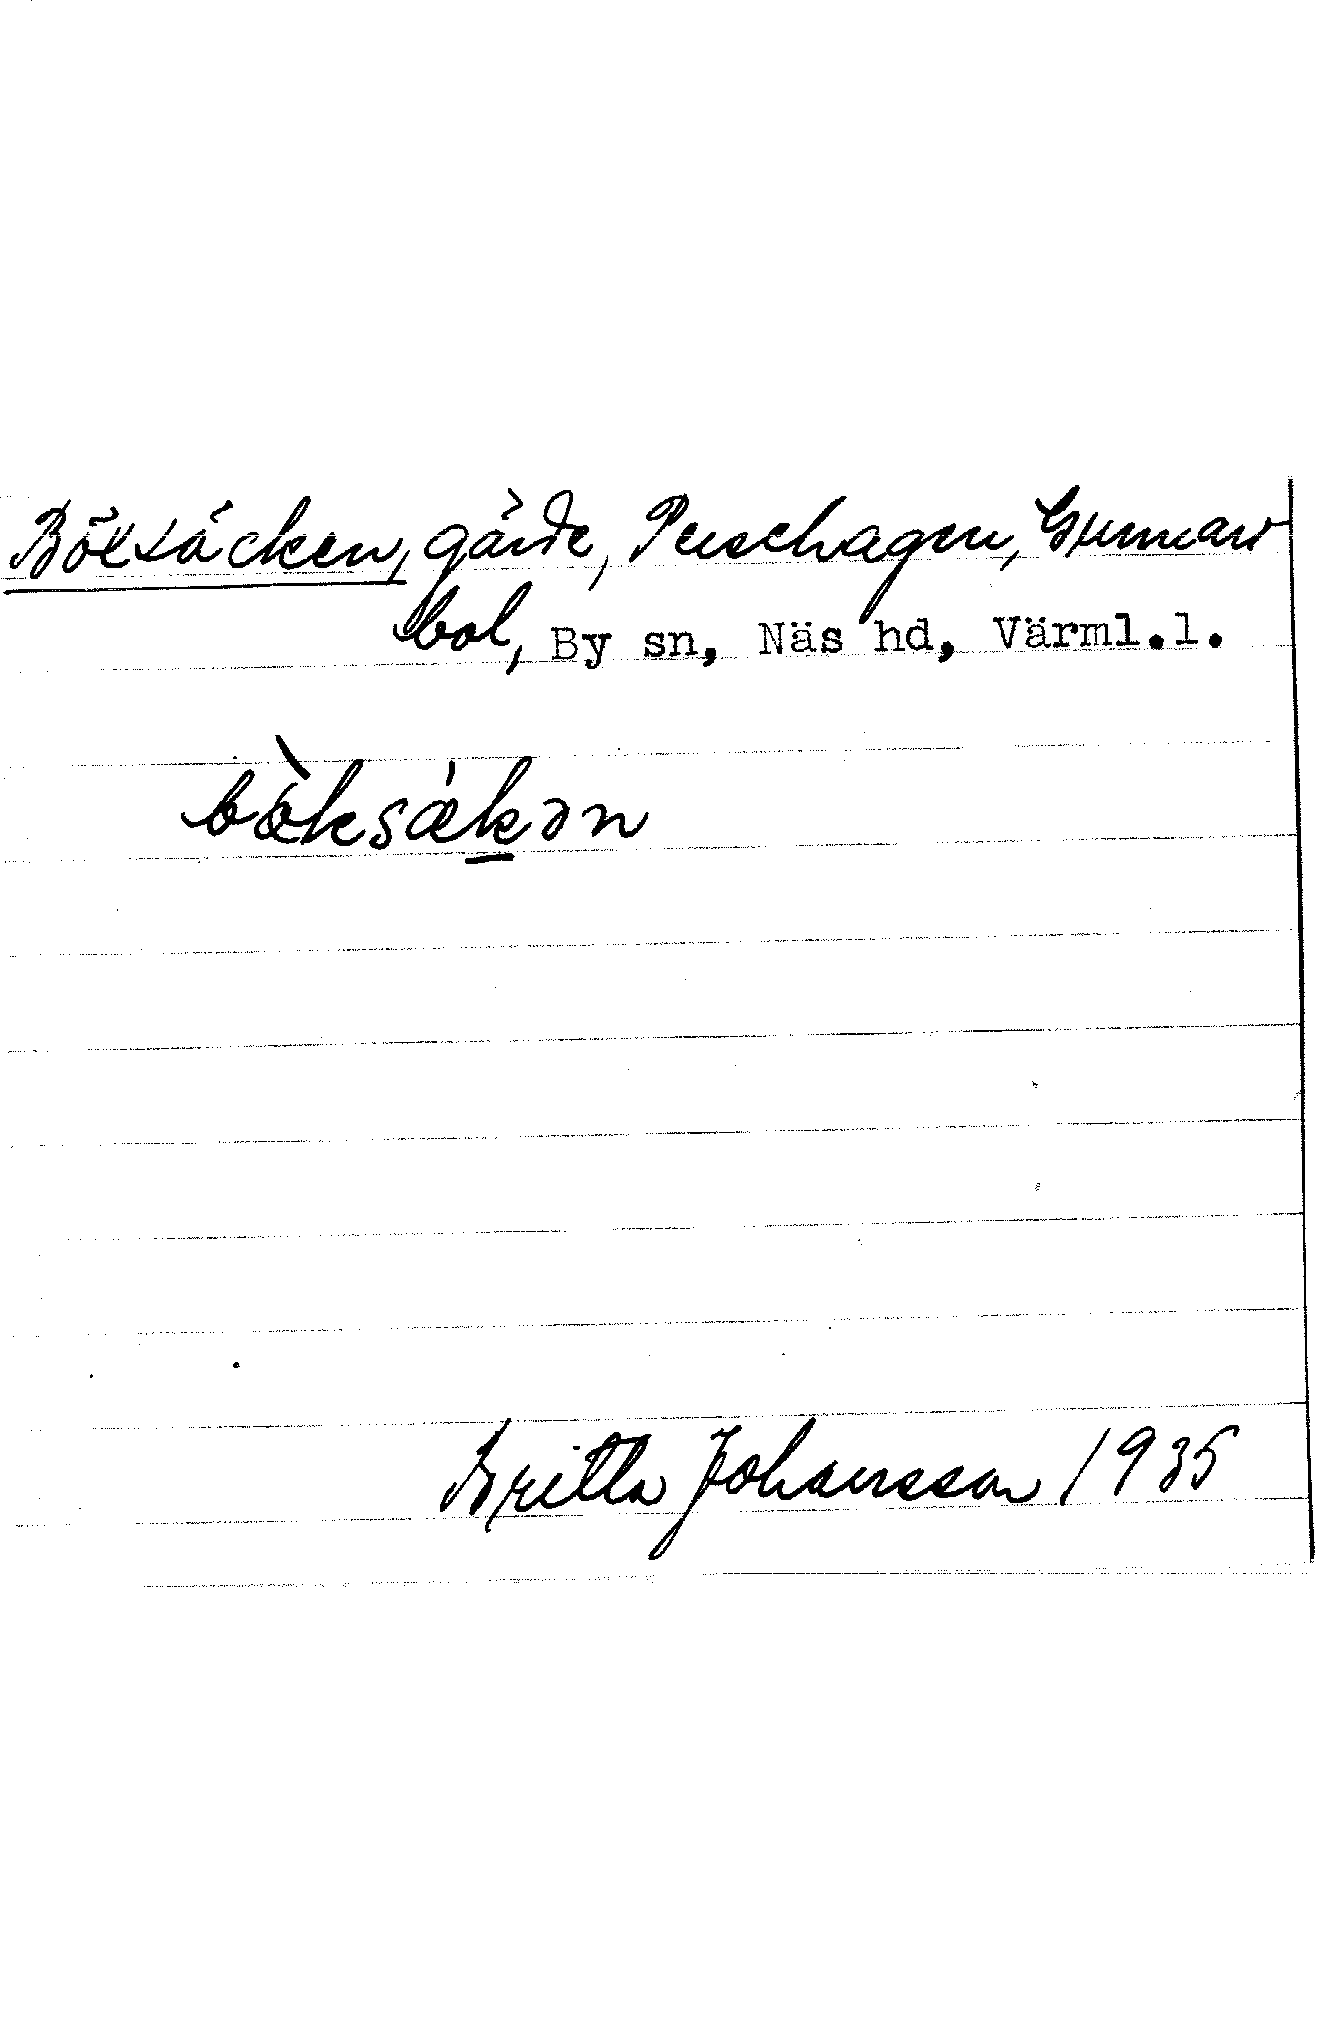 Böksäcken, gärde, Perschagen, Gunnars
bol, By sn, Näs hd, Värml.l.
bö̀ksækən
Britta Johansson 1935